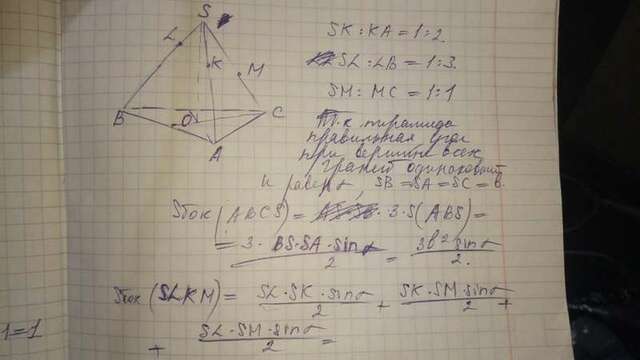 S
L
K
M
B
O
C
A
SK : KA = 1 : 2.
SL : LB = 1 : 3.
SM : MC = 1 : 1
Т.к. пирамида
правильная угол
при вершине всех
граней одинаковый
и равен , SB = SA = SC = b.
Sбок (ABCS) = 3·S(ABS) =
= 3· BS·SA·sinα / 2 = 3b² sinα / 2.
Sбок (SLKM) = SL·SK·sinα / 2 + SK·SM·sinα / 2 +
+ SL·SM·sinα / 2 =
1=1